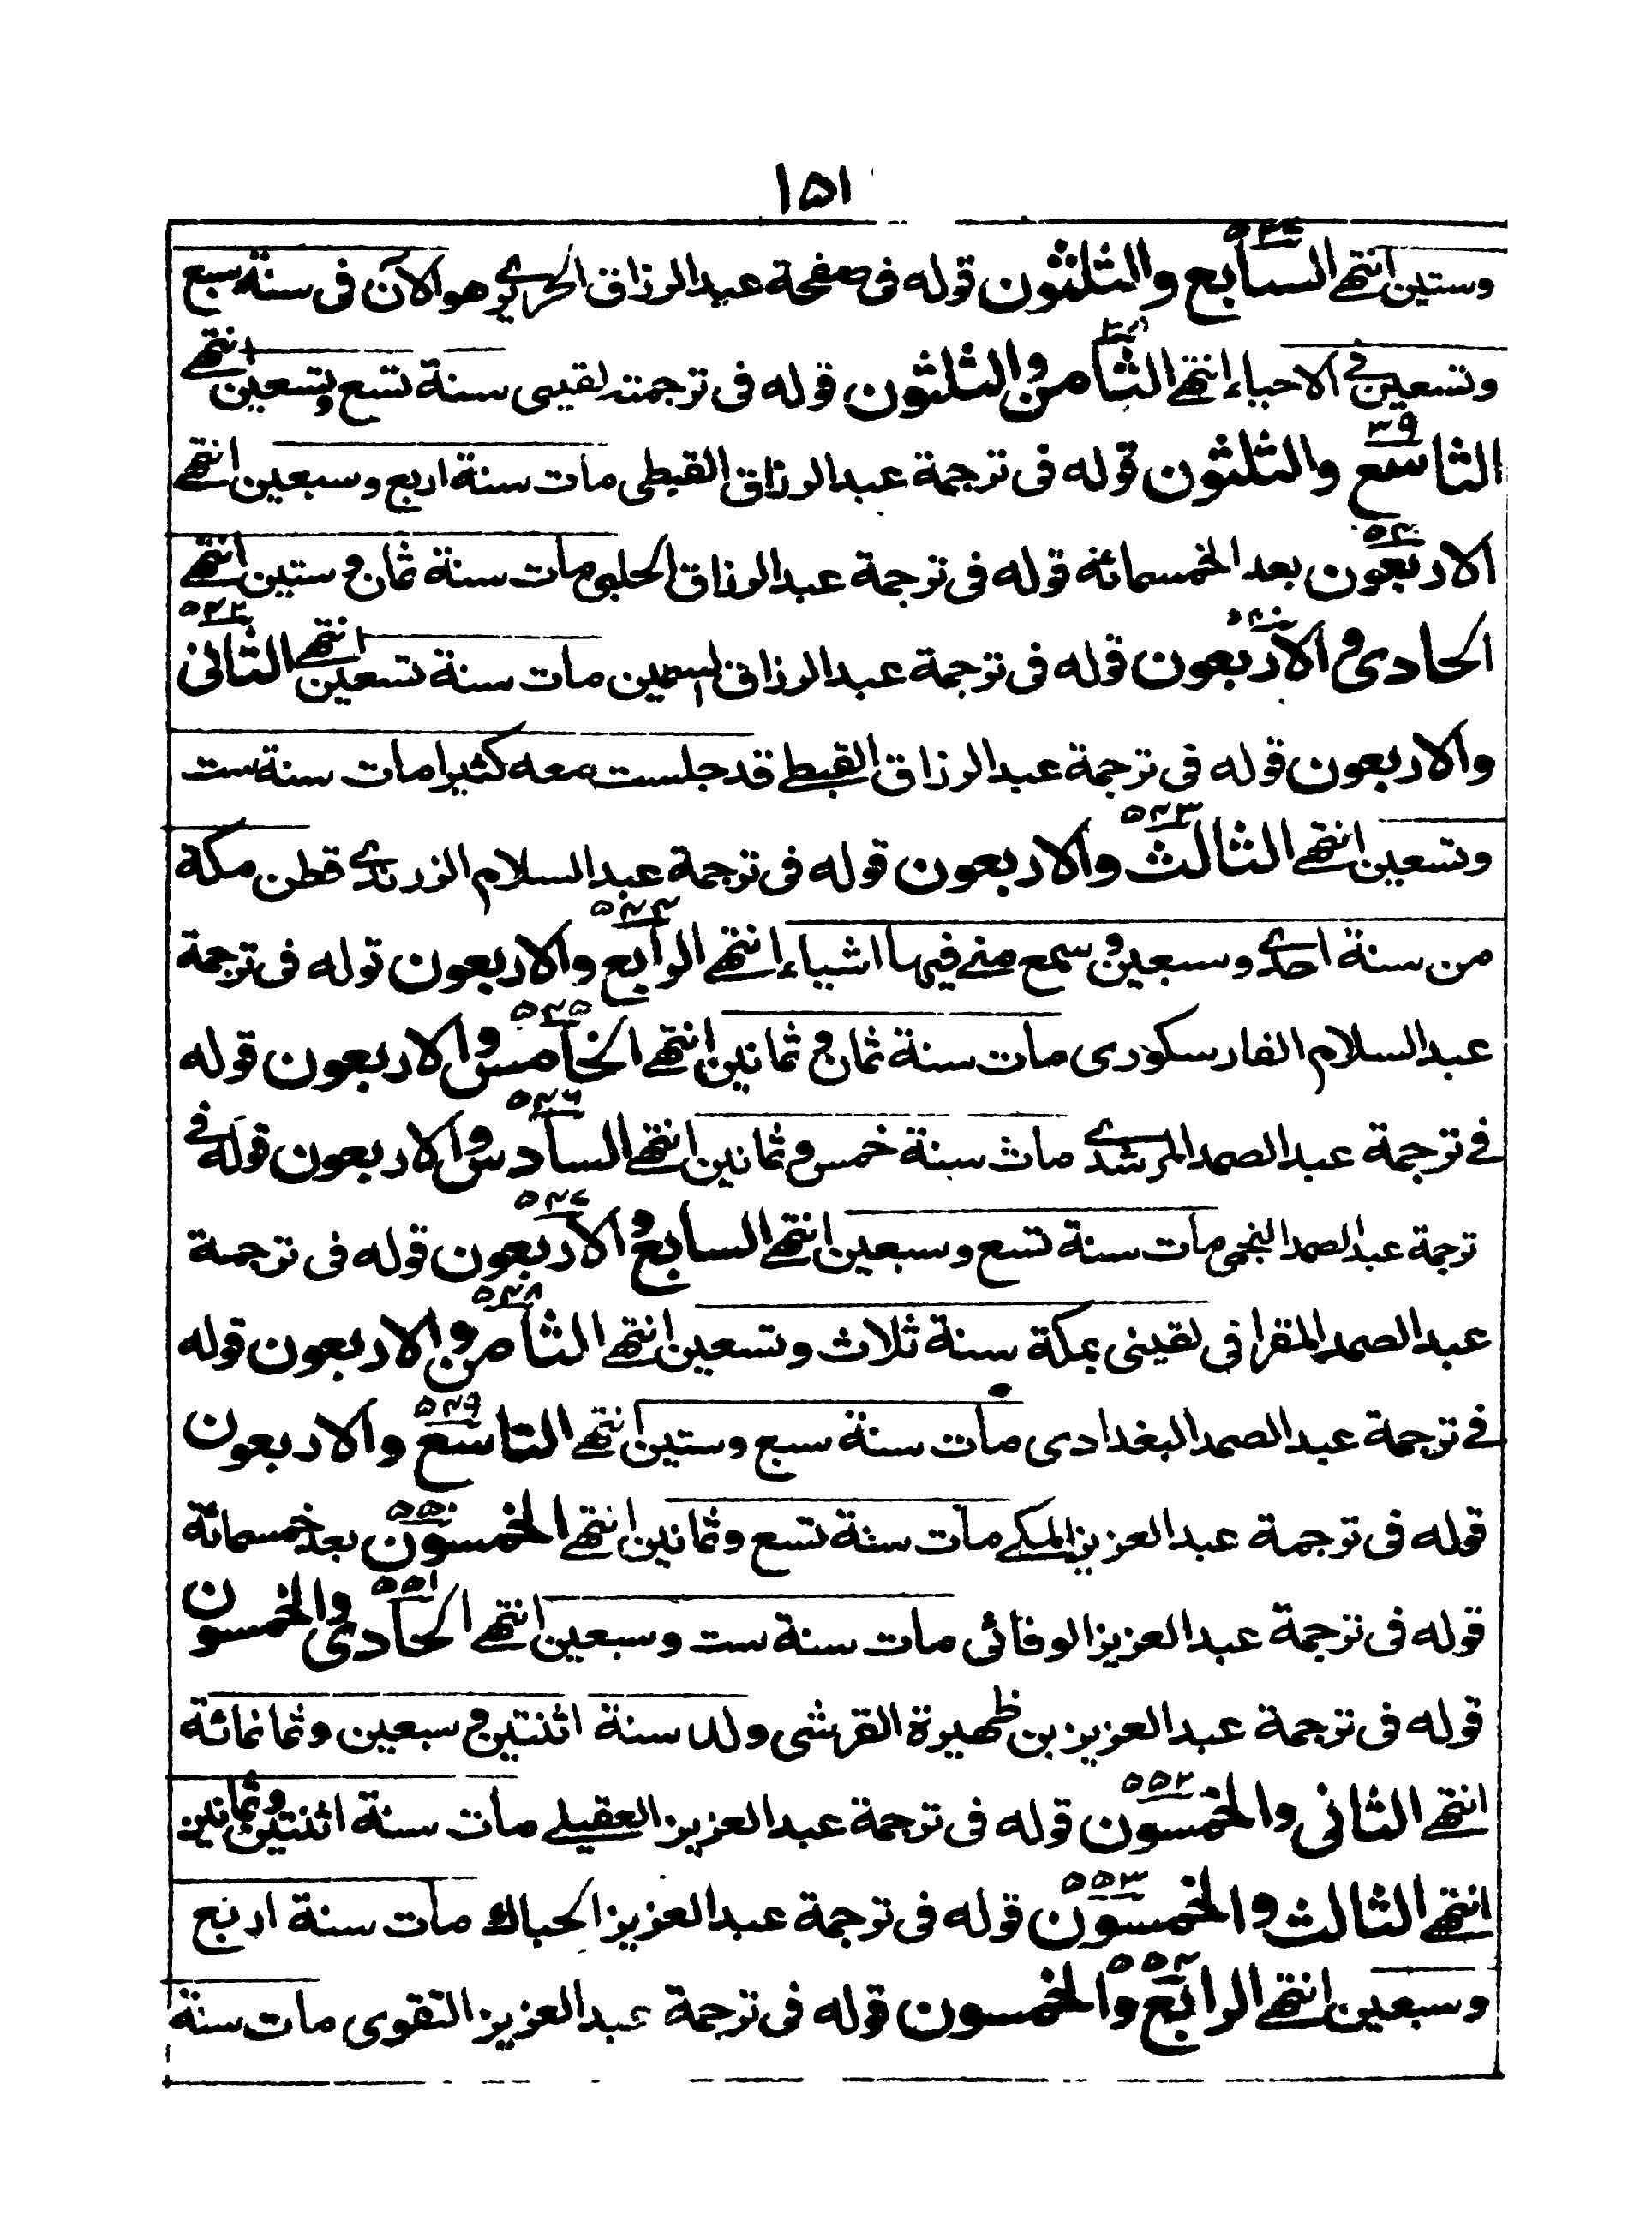 ١٥١
٥٣٧
وستين انتهے السابع والثلثون قوله فى صفحة عبد الرزاق الحريرے هو الآن فى سنة سبع
وتسعين فے الاحياء انتهے الثامن والثلثون قوله فى ترجمته لقينى سنة تسع وتسعين انتهے
٣٩
التاسع والثلثون قوله فى ترجمة عبد الرزاق القبطى مات سنة اربع وسبعين انتهے
٥٤٠
الاربعون بعد الخمسمائة قوله فى ترجمة عبد الرزاق الحلبى مات سنة ثمان وستين انتهے
٥٤٢
الحادى والاربعون قوله فى ترجمة عبد الرزاق السمين مات سنة تسعين انتهے الثانى
والاربعون قوله فى ترجمة عبد الرزاق القبطے قد جلست معه كثيرا مات سنة ست
٥٤٣
وتسعين انتهے الثالث والاربعون قوله فى ترجمة عبد السلام الزرندے قطن مكة
٥٤٤
من سنة احدے وسبعين وسمع منے فيها اشياء انتهے الرابع والاربعون قوله فى ترجمة
٥٤٥
عبد السلام الفارسكورى مات سنة ثمان وثمانين انتهے الخامس والاربعون قوله
٥٤٦
فے ترجمة عبد الصمد المرشدے مات سنة خمس وثمانين انتهے السادس والاربعون قوله فے
٥٤٧
ترجمة عبد الصمد النجمى مات سنة تسع وسبعين انتهے السابع والاربعون قوله فى ترجمة
٥٤٨
عبد الصمد المقرانى لقينى بمكة سنة ثلاث وتسعين انتهے الثامن والاربعون قوله
٥٤٩
فے ترجمة عبد الصمد البغدادى مات سنة سبع وستين انتهے التاسع والاربعون
٥٥٠
قوله فى ترجمة عبد العزيز المكے مات سنة تسع وثمانين انتهے الخمسون بعد خمسمائة
٥٥١
قوله فى ترجمة عبد العزيز الوفائى مات سنة ست وسبعين انتهے الحادى والخمسون
قوله فى ترجمة عبد العزيز بن ظهيرة القرشى ولد سنة اثنتين وسبعين وثمانمائة
٥٥٢
انتهے الثانى والخمسون قوله فى ترجمة عبد العزيز العقيلے مات سنة اثنتين وثمانين
٥٥٣
انتهے الثالث والخمسون قوله فى ترجمة عبد العزيز الحباك مات سنة اربع
٥٥٤
وسبعين انتهے الرابع والخمسون قوله فى ترجمة عبد العزيز التقوى مات سنة